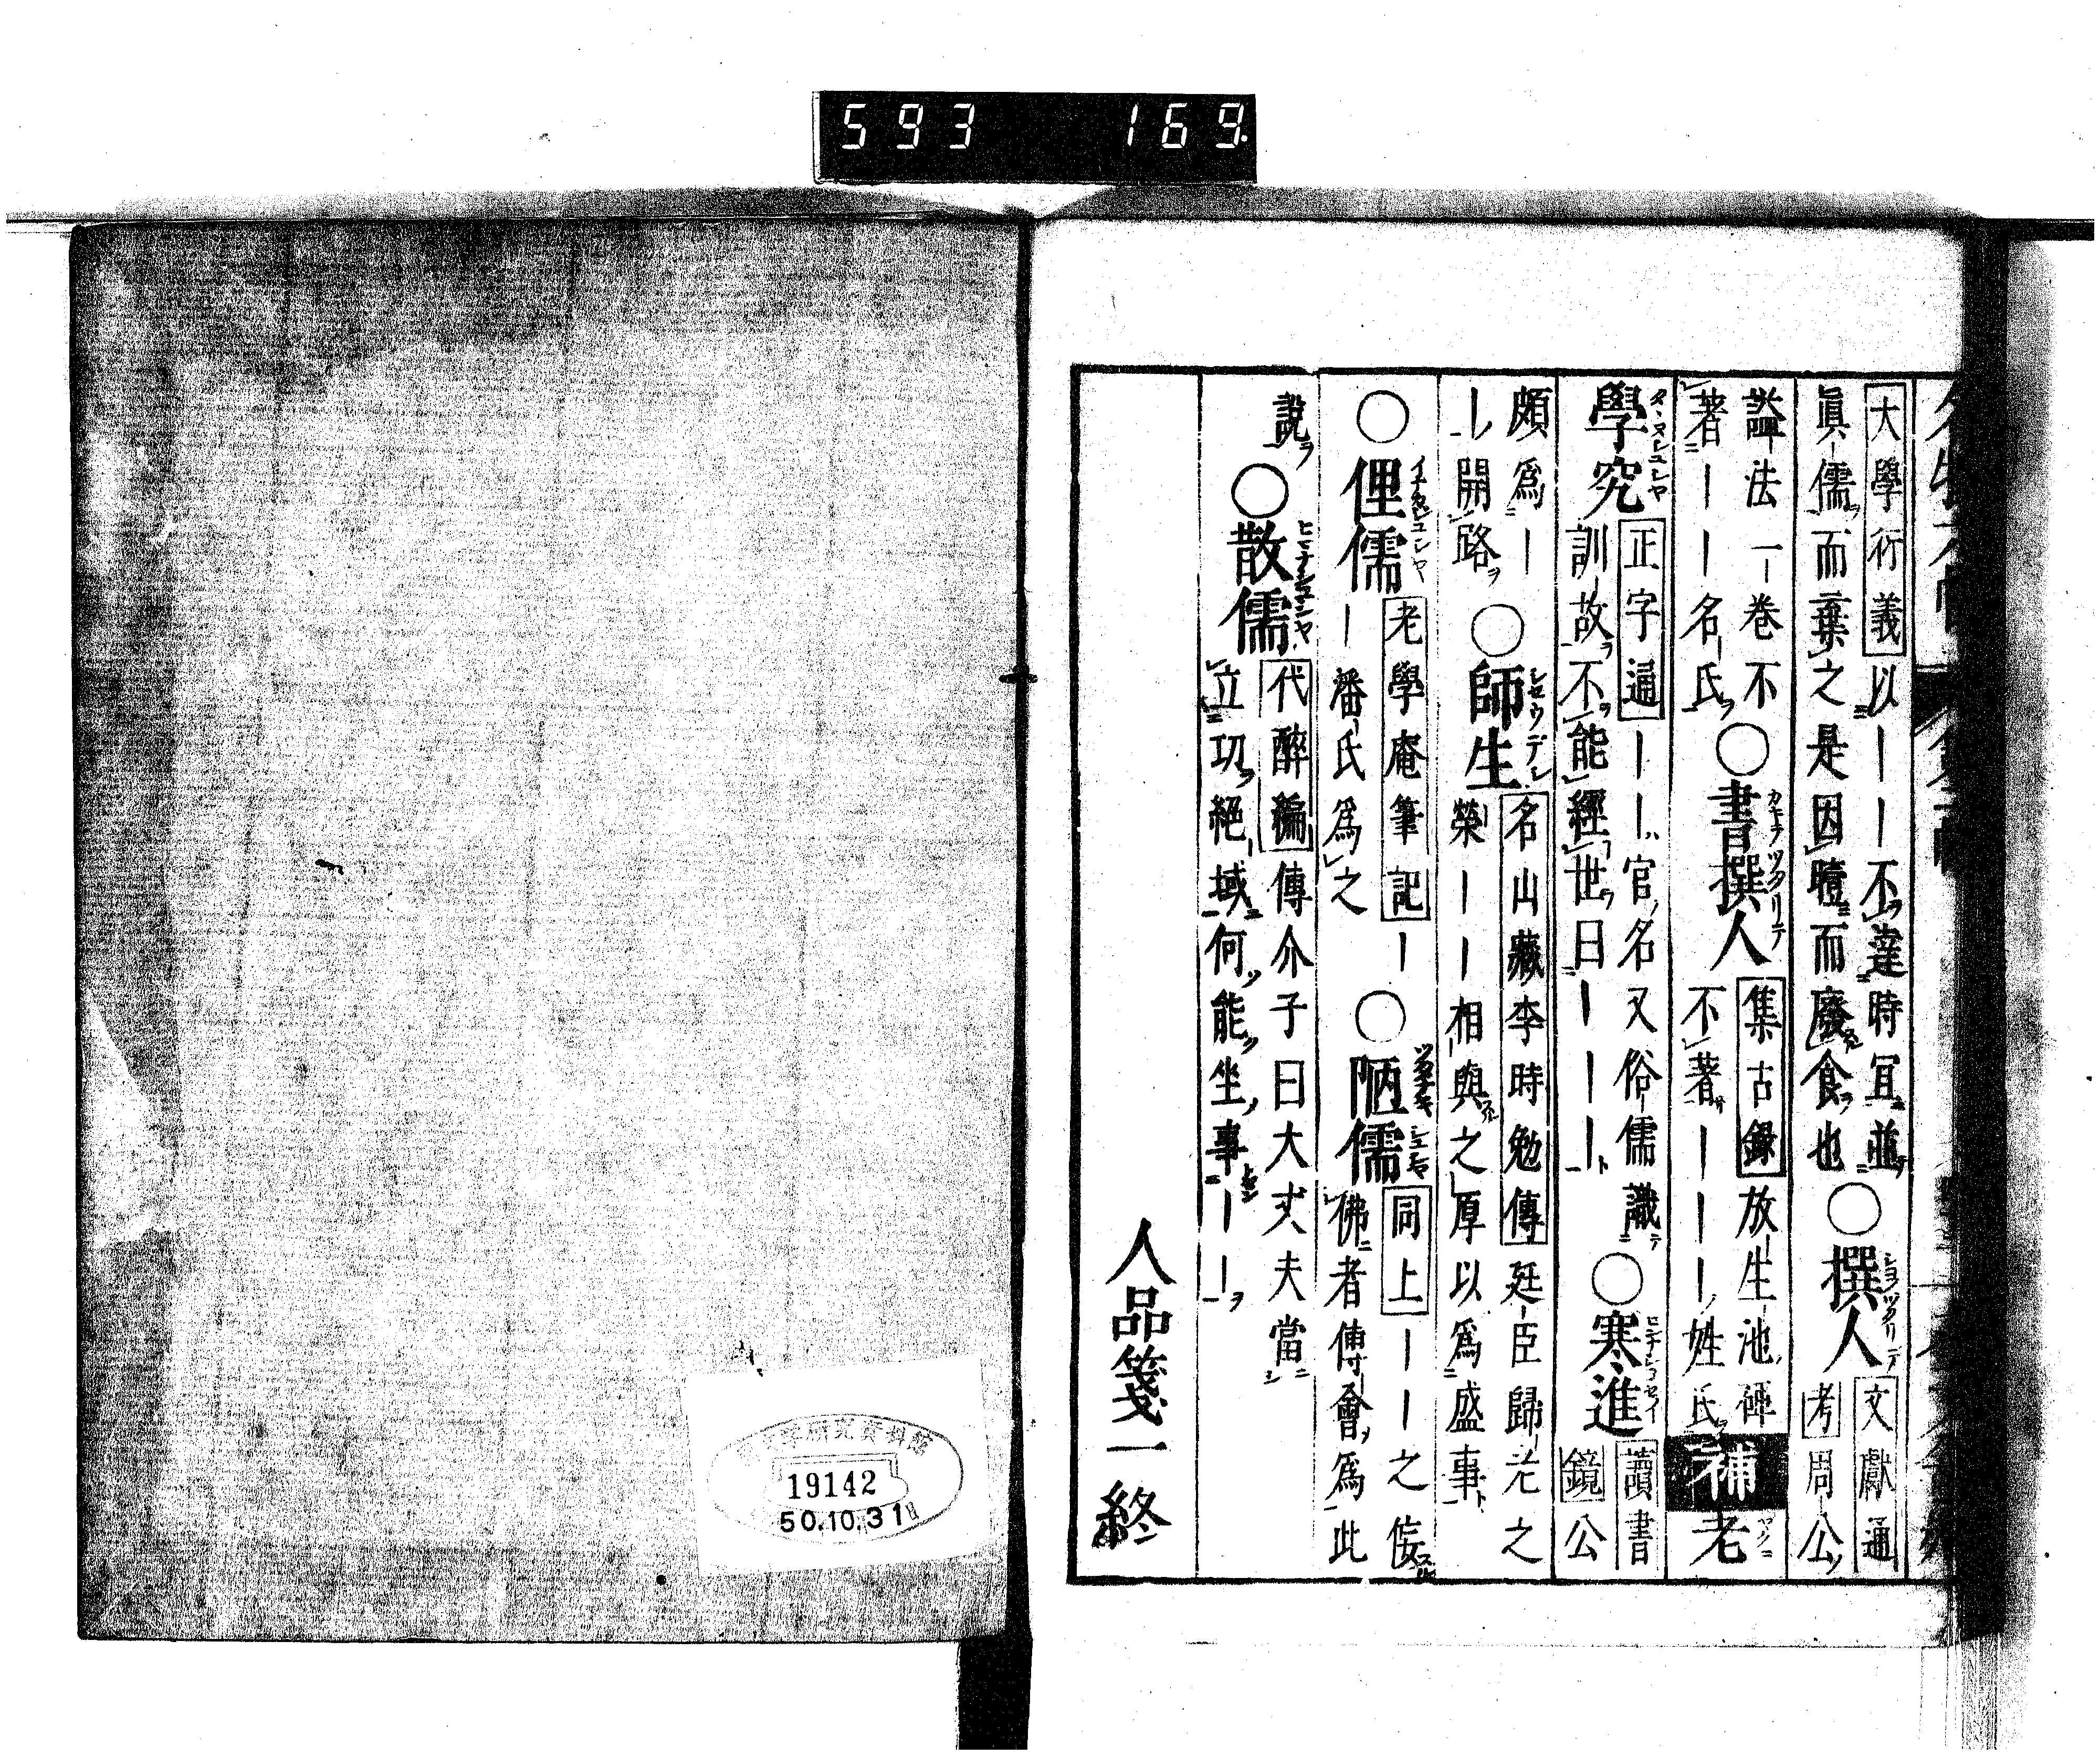 593 169
大學衍義以｜｜不達時宜並
眞儒而棄之是因噎而廢食也
○撰人
文獻通
考周公
謚法一巻不
著｜｜名氏
○書撰人
集古録放生池碑
不著｜｜｜姓氏
補老
學究
正字通｜｜官名又俗儒識
訓故不能經世曰｜｜｜
○寒進
讀書
鏡公
頗爲｜
｜開路
○師生
名山藏李時勉傳廷臣歸光之
榮｜｜相與之厚以爲盛事
○俚儒
老學庵筆記｜
｜潘氏爲之
○陋儒
同上｜｜之侫
佛者傅會爲此
說
○散儒
代醉編傳介子曰大丈夫當
立功絕域何能坐事｜｜
人品箋一終
19142
50.10.31